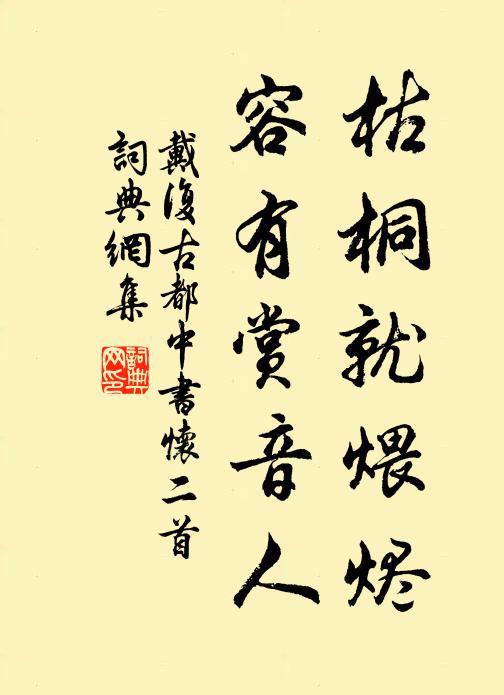 枯桐就煨烬
容有赏音人
戴復古都中書懷二首
詞典網集
詞典
网印